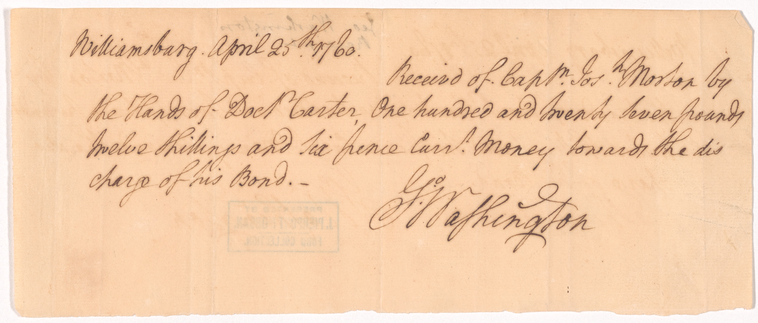 Williamsburg. April 25th. 1760.
Receivd of Captn. Jos.h Morton by
the Hands of Doctr Carter, One hundred and twenty seven pounds
twelve shillings and six pence Curr.t Money towards the dis
charge of his Bond.—
Go. Washington